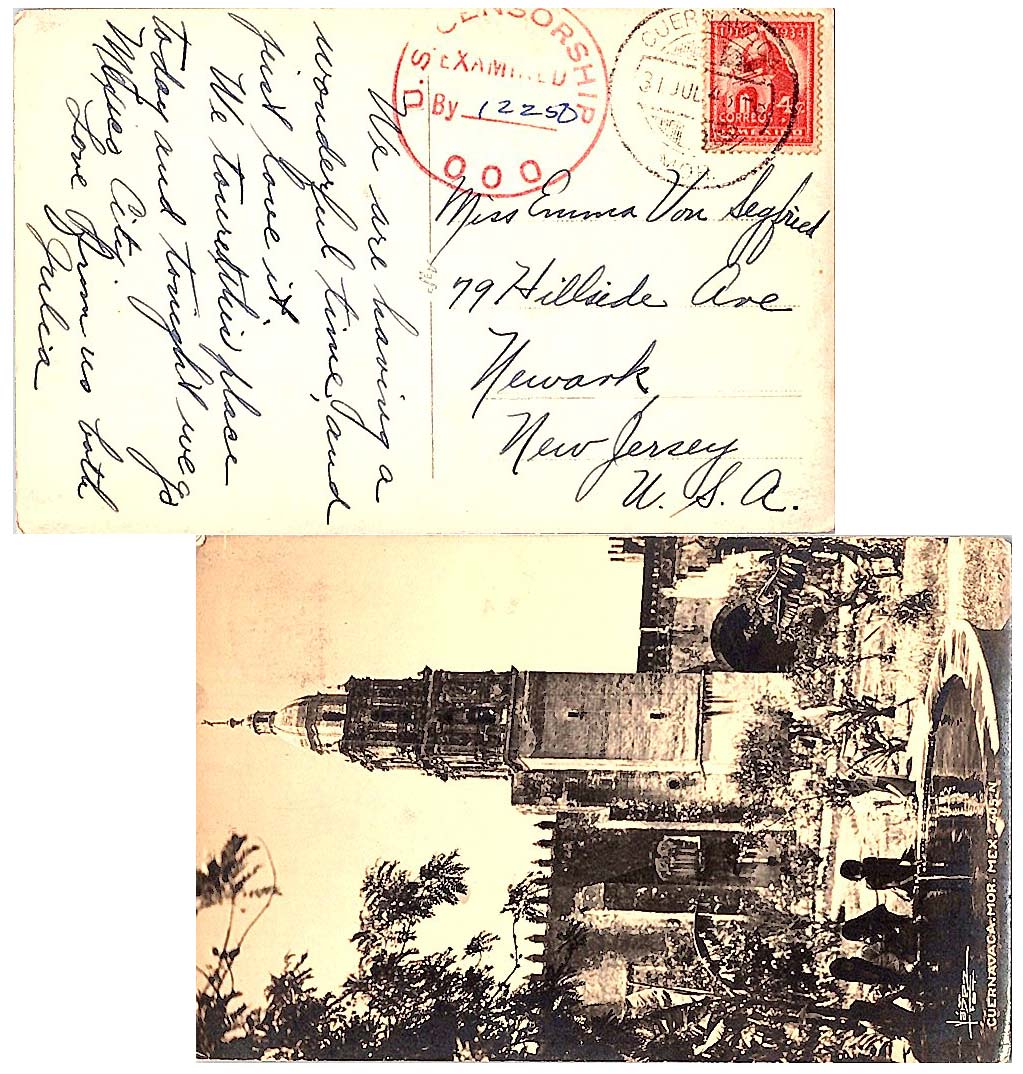 U.S. CENSORSHIP
EXAMINED
By 12258
000
CUERNAVACA
31 JUL 4
MOR.
1934
4
CORREOS
MEXICO
Miss Emma Von Segfried
79 Hillside Ave
Newark,
New Jersey
U. S. A.
We are having a
wonderful time, and
just love it
We toured this place
today and tonight we go
Mexico City.
Love from us both
Julia
CUERNAVACA - MOR - MEX.